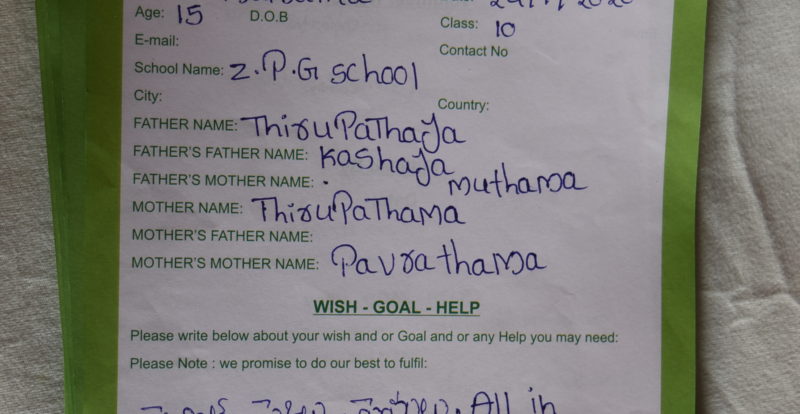 Age: 15 D.O.B Class: 10
E-mail: Contact No
School Name: Z.P.G school
City: Country:
FATHER NAME: ThiruPaThaJa
FATHER'S FATHER NAME: KashaJa
FATHER'S MOTHER NAME: muthama
MOTHER NAME: ThiruPaThama
MOTHER'S FATHER NAME:
MOTHER'S MOTHER NAME: Pavrathama
WISH - GOAL - HELP
Please write below about your wish and or Goal and or any Help you may need:
Please Note : we promise to do our best to fulfil:
All in